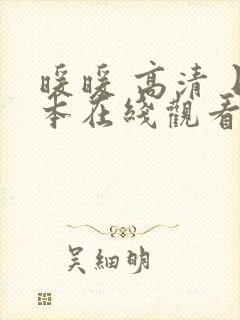 暖暖 高清
本在綫觀看
吴細明